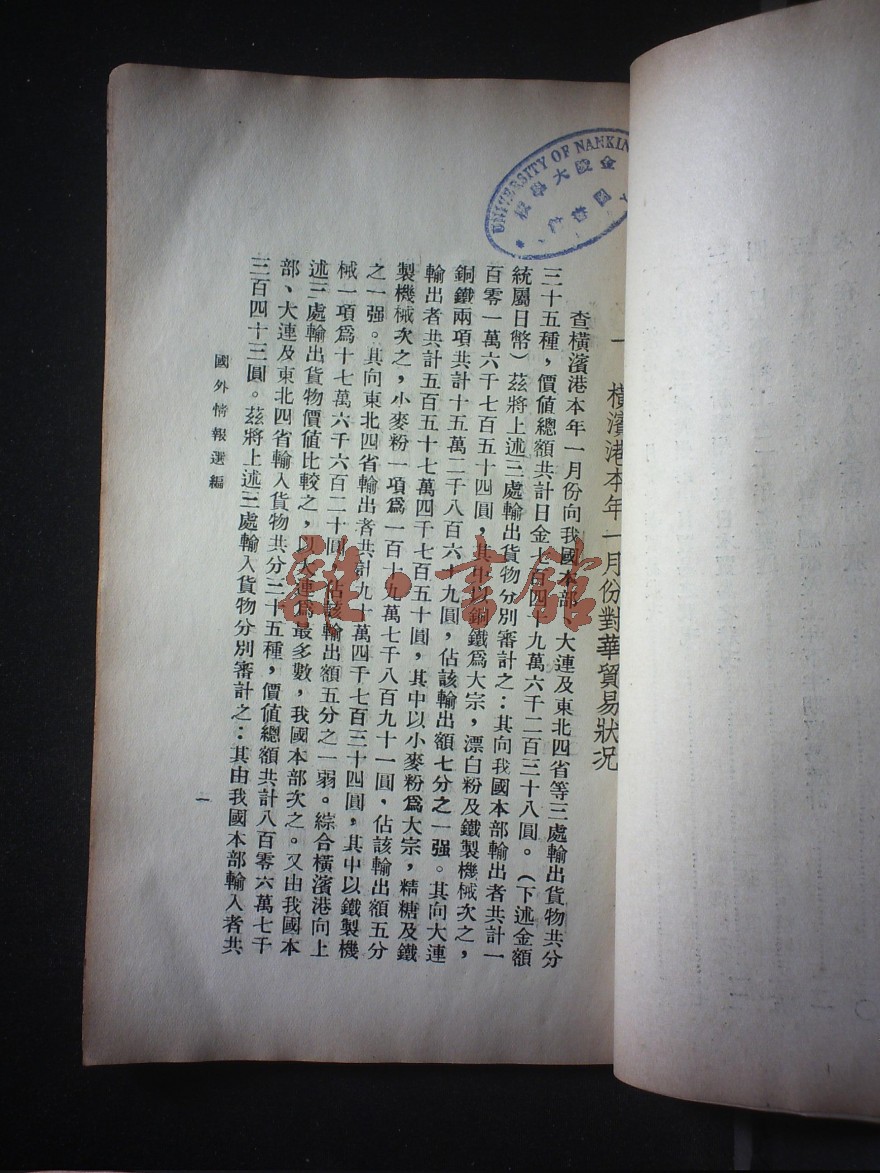 UNIVERSITY OF NANKIN
一 橫濱港本年一月份對華貿易狀况
查橫濱港本年一月份向我國本部、大連及東北四省等三處輸出貨物共分
三十五種，價値總額共計日金七百四十九萬六千二百三十八圓。（下述金額
統屬日幣）茲將上述三處輸出貨物分別審計之：其向我國本部輸出者共計一
百零一萬六千七百五十四圓，其中以銅鐵爲大宗，漂白粉及鐵製機械次之，
銅鐵兩項共計十五萬二千八百六十九圓，佔該輸出額七分之一强。其向大連
輸出者共計五百五十七萬四千七百五十圓，其中以小麥粉爲大宗，精糖及鐵
製機械次之，小麥粉一項爲一百十九萬七千八百九十一圓，佔該輸出額五分
之一强。其向東北四省輸出者共計九十萬四千七百三十四圓，其中以鐵製機
械一項爲十七萬六千六百二十圓，佔該輸出額五分之一弱。綜合橫濱港向上
述三處輸出貨物價値比較之，以大連爲最多數，我國本部次之。又由我國本
部、大連及東北四省輸入貨物共分二十五種，價値總額共計八百零六萬七千
三百四十三圓。茲將上述三處輸入貨物分別審計之：其由我國本部輸入者共
國外情報選編
一
雜·書館